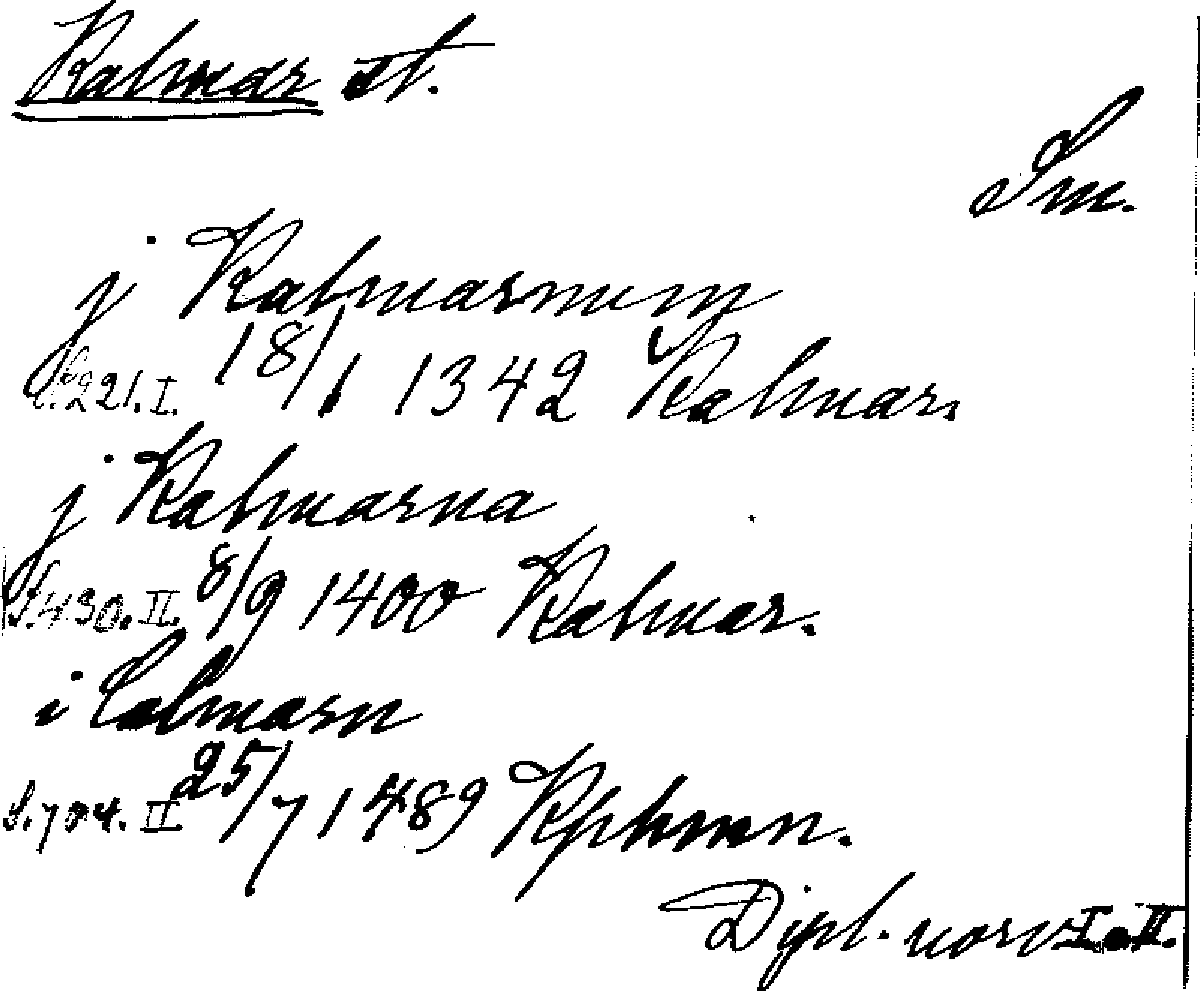 Kalmar st.
Sm.
j Kalmarnum
S.221.I. 18/1 1342 Kalmar.
j Kalmarna
S.430.II. 8/9 1400 Kalmar.
i Calmarn
S.704.II 25/7 1489 Kphmn.
Dipl. norv I o. II.